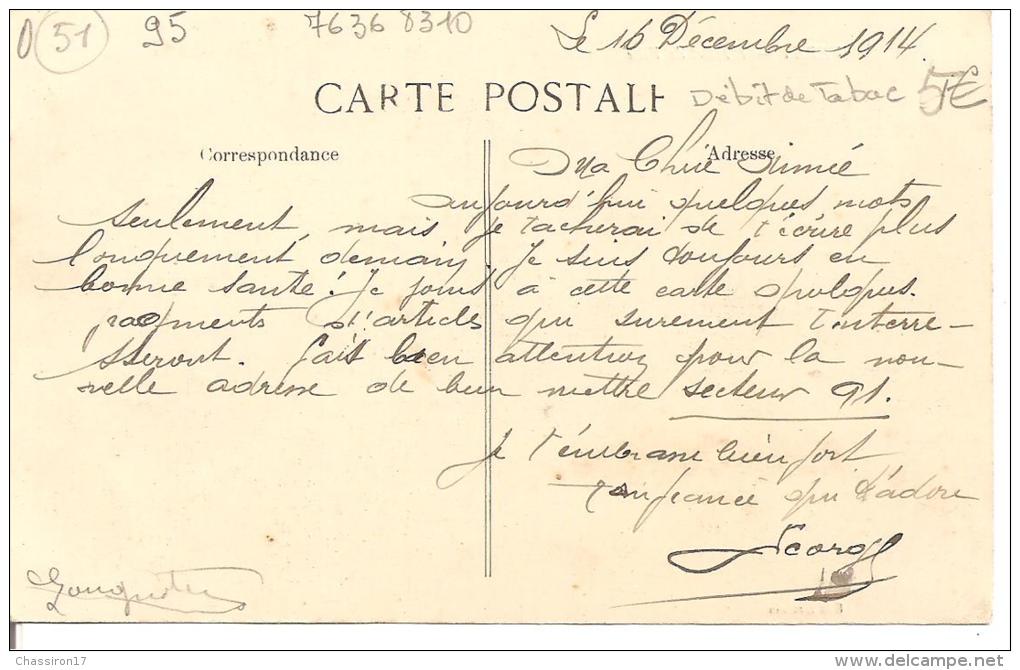 51 95 76368310
Le 16 Décembre 1914.
CARTE POSTALE
Débit de Tabac 5€
Correspondance
Adresse
Ma Chère Aimée
aujourd'hui quelques mots
seulement, mais je tacherai de t'écrire plus
longuement demain, Je suis toujours en
bonne santé! Je joins à cette carte quelques
fragments d'articles qui surement t'interre-
sseront. Fait bien attention pour la nou-
velle adresse de bien mettre secteur 91.
Je t'embrasse bien fort
ton fiancé qui t'adore
Georges
Chassiron17
delcampe.net